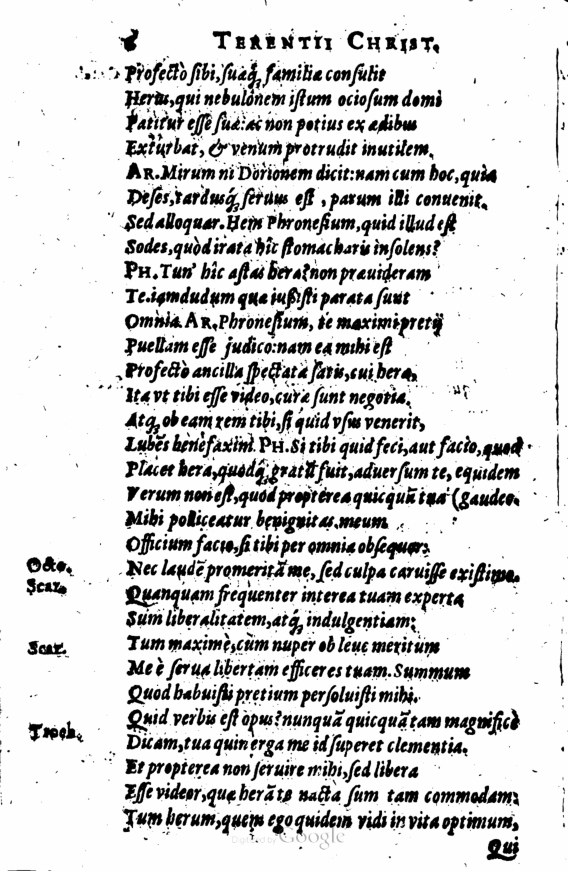 TERENTII CHRIST.
Profectò sibi, suaq́; familiæ consulit
Herus, qui nebulonem istum ociosum domi
Patitur esse suæ: ac non potius ex ædibus
Exturbat, & venum protrudit inutilem.
AR. Mirum ni Dorionem dicit: nam cum hoc, quia
Deses, tardusq́; seruus est, parum illi conuenit.
Sed alloquar. Hem Phronesium, quid illud est
Sodes, quòd irata hîc stomacharis insolens?
PH. Tun' hîc astas hera? non præuideram
Te. iamdudum quæ iußisti parata sunt
Omnia. AR. Phronesium, te maximi pretij
Puellam esse judico: nam ea mihi est
Profectò ancilla spectata satis, cui heræ,
Ita vt tibi esse video, curæ sunt negotia.
Atq́; ob eam rem tibi, si quid vsus venerit,
Lubēs benefaxim. PH. Si tibi quid feci, aut facio, quod
Placet hera, quodq́; gratū fuit, aduersum te, equidem
Verum non est, quòd propterea quicquā tua (gaudeo.
Mihi polliceatur benignitas. meum
Officium facio, si tibi per omnia obsequor:
Octo. Nec laudē promeritā me, sed culpa caruisse existimo.
Scaz. Quanquam frequenter interea tuam experta
Sum liberalitatem, atq́; indulgentiam:
Scaz. Tum maximè, cùm nuper ob leue meritum
Me è serua libertam efficeres tuam. Summum
Quod habuisti pretium persoluisti mihi.
Quid verbis est opus? nunquā quicquā tam magnificè
Troch. Dicam, tua quin erga me id superet clementia.
Et propterea non seruire mihi, sed libera
Esse videor, quæ herā te nacta sum tam commodam:
Tum herum, quem ego quidem vidi in vita optimum,
Digitized by Google
Qui